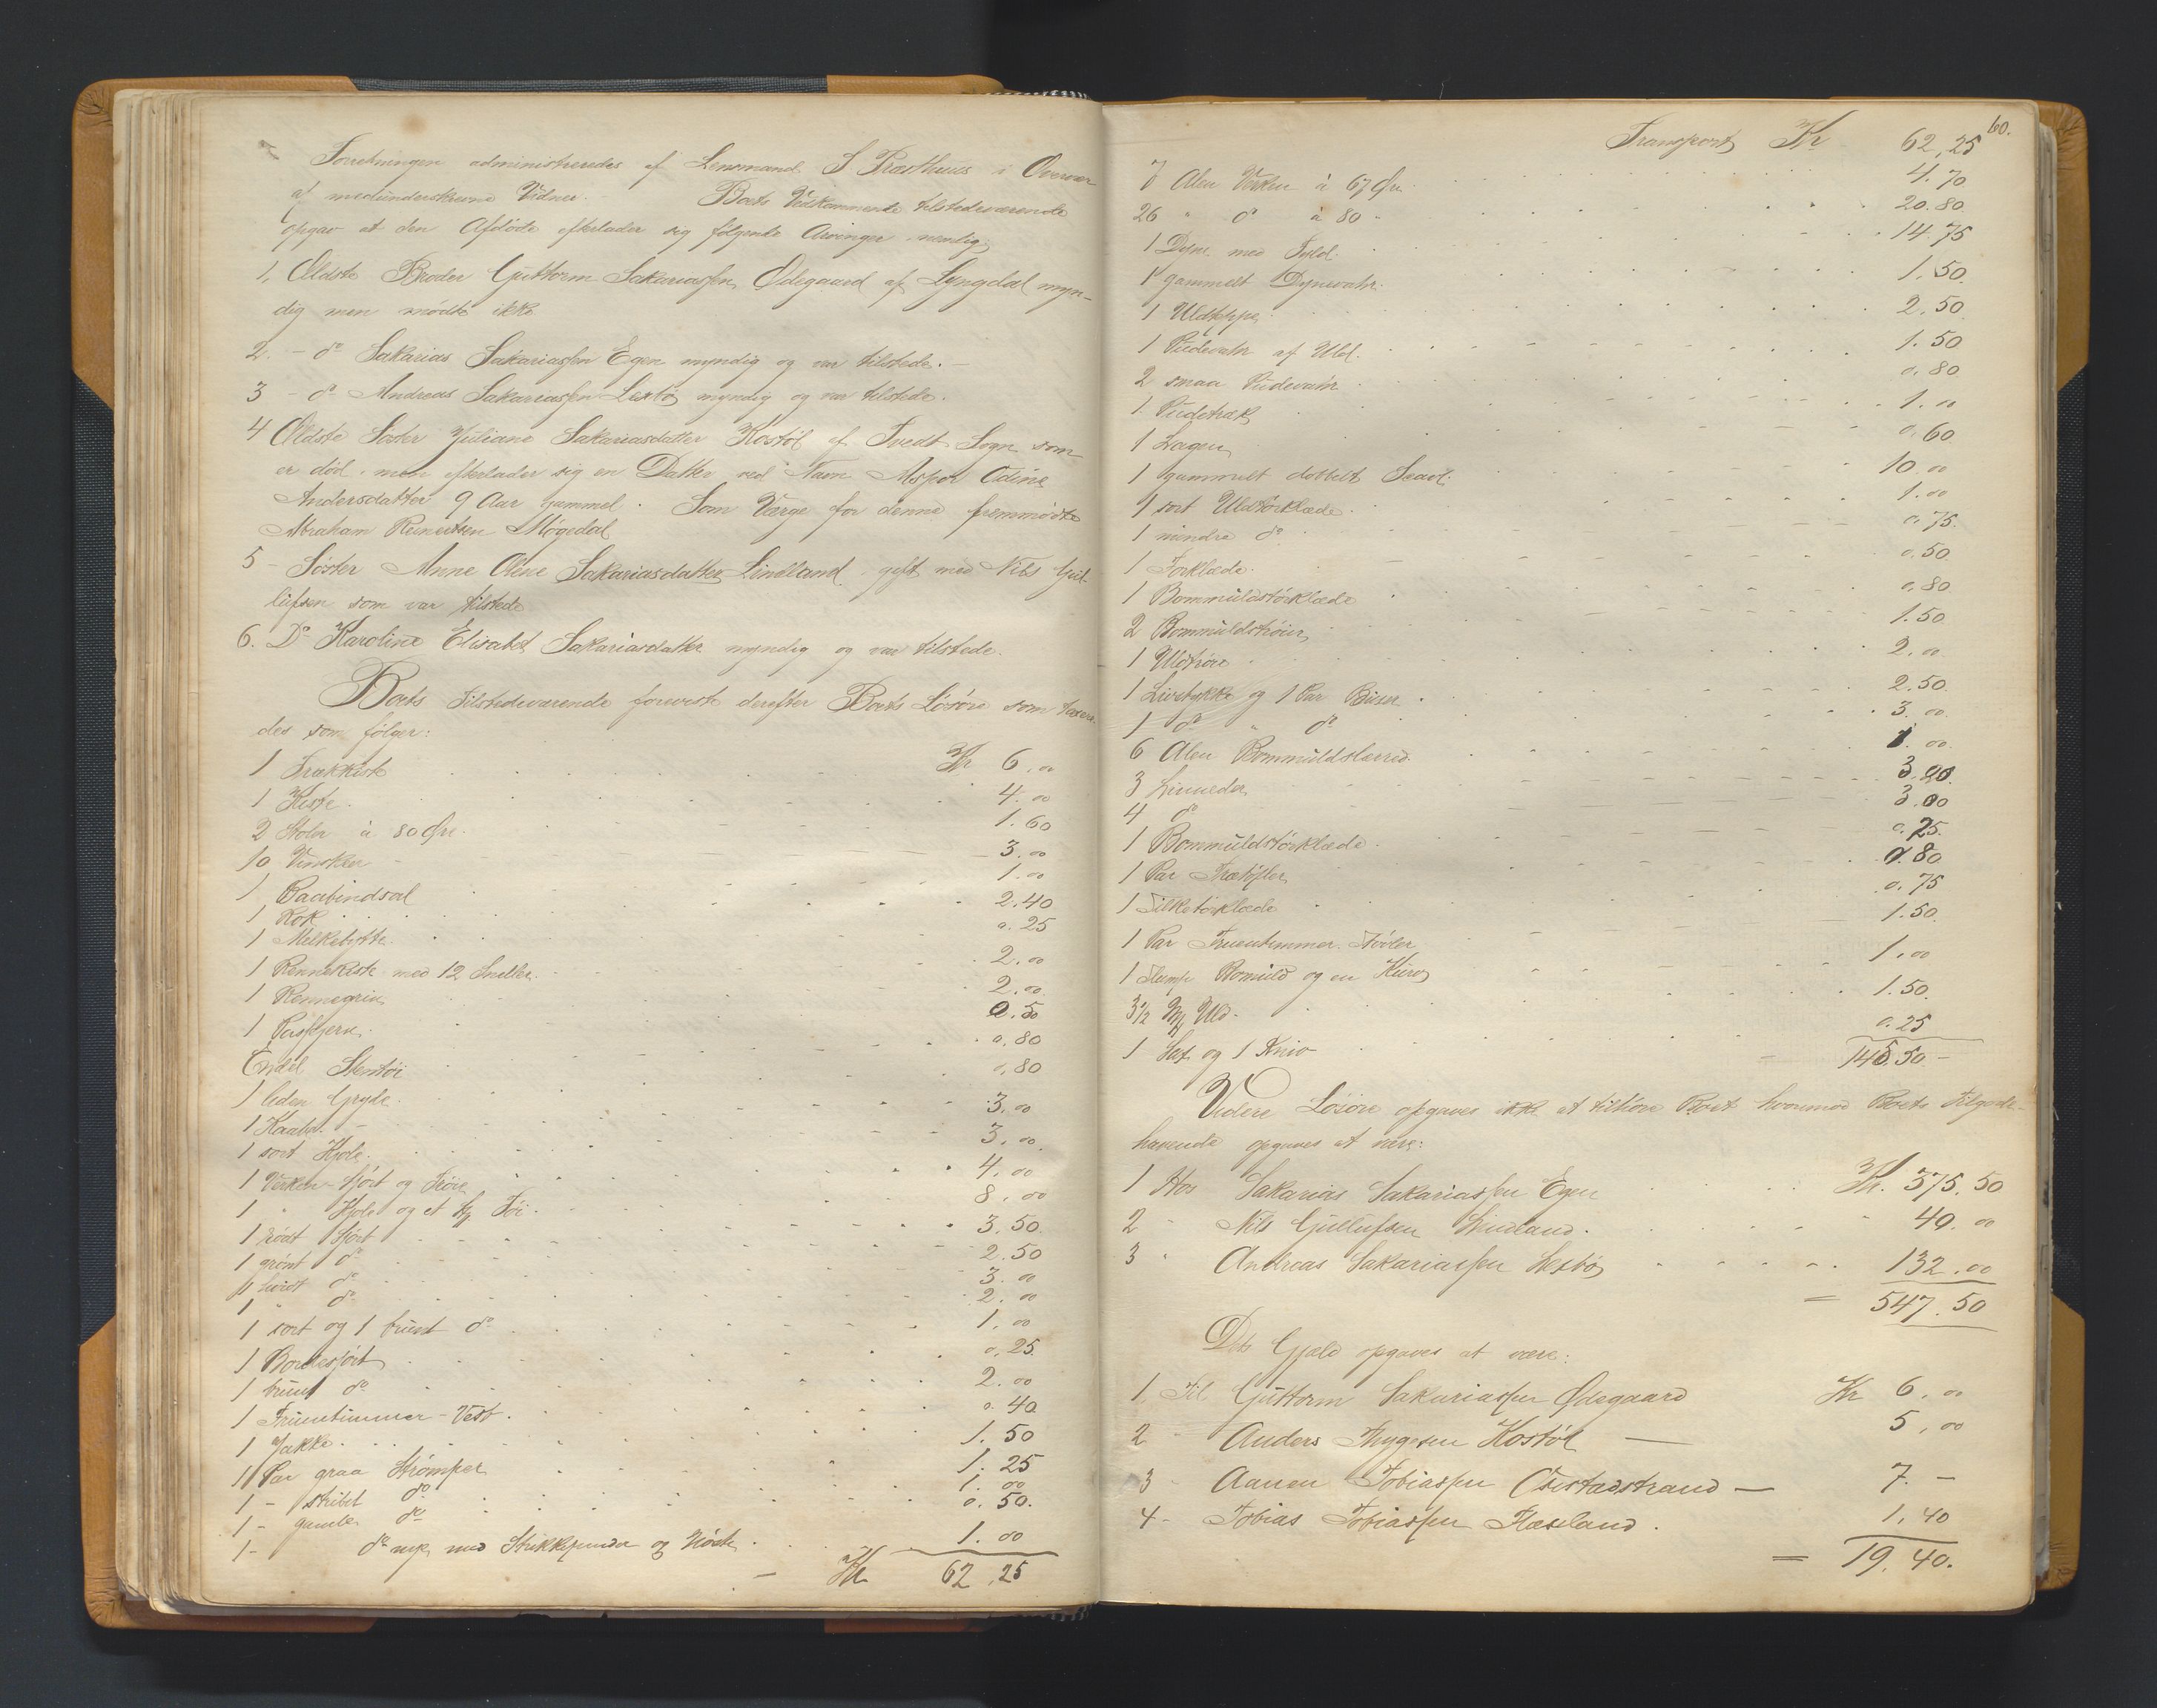 Forretningen administreredes af Lensmand S Præsthuus i Overvær
af medunderskrevne Vidner. - Boets Vedkommende tilstedeværende
opgav at den Afdøde efterlader sig følgende Arvinger nemlig
1. Ældste Broder Guttorm Sakariassen Ødegaard af Lyngdal myn-
dig men mødte ikke
2. - do Sakarias Sakariassen Egen myndig og var tilstede. -
3 - do Andreas Sakariassen Lextø myndig og var tilstede.
4 Ældste Søster Juliane Sakariasdatter Kostøl af Tvedt Sogn som
er død, men efterlader sig en Datter ved Navn Aspor Odine
Andersdatter 9 Aar gammel. Som Værge for denne fremmødte
Abraham Reinertsen Møgedal
5 - Søster Anne Olene Sakariasdatter Lindland gift med Nils Gul-
lufsen som var tilstede
6. Do Karoline Elisabet Sakariasdatter myndig og var tilstede.
Boets Tilstedeværende foreviste derefter Boets Løsøre som taxere-
des som følger:
1 Trækkiste Kr 6.00
1 Kiste 4.00
2 Stoler à 80 Øre 1.60
10 Vinsker 3.00
1 Baabindsal 1.00
1 Rok 2.40
1 Melkebøtte 0.25
1 Rennekiste med 12 Sneller 2.00
1 Rennegrin 2.00
1 Pasjern 0.50
Endel Stentøi 0.80
1 liden Gryde 0.80
1 Kaabe 3.00
1 sort Kjole 3.00
1 Verken-Sjört og Trøie 4.00
1 " Kjole og et Stk Tøi 8.00
1 rødt Sjört 3.50
1 grønt do 2.50
1 hvidt do 3.00
1 " do 2.00
1 sort og 1 brunt do 1.00
1 Bordesjört 0.25
1 brunt do 2.00
1 Fruentimmer-Vest 0.40
1 Jakke 1.50
1 Par graa Strømper 1.25
1 - stribet do 1.00
1 - gamle do 0.50
1 - do nye med Strikkepinder og Nøste 1.00
- Kr 62.25
60.
Transport Kr 62,25
7 Alen Verken à 67 Øre 4.70
26 " do à 80 " 20.80
1 Dyne med Fyld 14.75
1 gammelt Dynevahr 1.50
1 Uldteppe 2.50
1 Pudevahr af Uld 1.50
2 smaa Pudevahr 0.80
1 Pudetræk 1.00
1 Lagen 0.60
1 gammelt dobbelt Seavl 10.00
1 sort Uldtørklæde 1.00
1 mindre do 0.75
1 Forklæde 0.50
1 Bommuldstørklæde 0.80
2 Bommuldstrøier 1.50
1 Uldtrøie 2.00
1 Livstykke og 1 Par Buser 2.50
1 do " do 3.00
6 Alen Bommuldslærred 1.00
3 Linneder 3.20
4 do 3.00
1 Bommuldstørklæde 0.25
1 Par Trætøfler 0.80
1 Silketørklæde 0.75
1 Par Fruentimmer Støvler 1.50
1 Slump Bomuld og en Kurv 1.00
3½ Mk Uld 1.50
1 Sax og 1 Kniv 0.25
- 145.50 -
Videre Løsøre opgaves ikke at tilhøre Boet hvormod Boets Tilgode-
havende opgaves at være:
1 Hos Sakarias Sakariassen Egen Kr. 375.50
2 " Nils Gullufsen Lindland 40.00
3 " Andreas Sakariassen Lextø 132.00
= 547.50
Dets Gjæld opgaves at være:
1. Til Guttorm Sakariassen Ødegaard Kr 6.00
2 - Anders Thygesen Kostøl — 5,00
3 - Aanen Tobiassen Osestadstrand — 7. -
4 - Tobias Tobiassen Flaseland. 1,40
= 19.40.